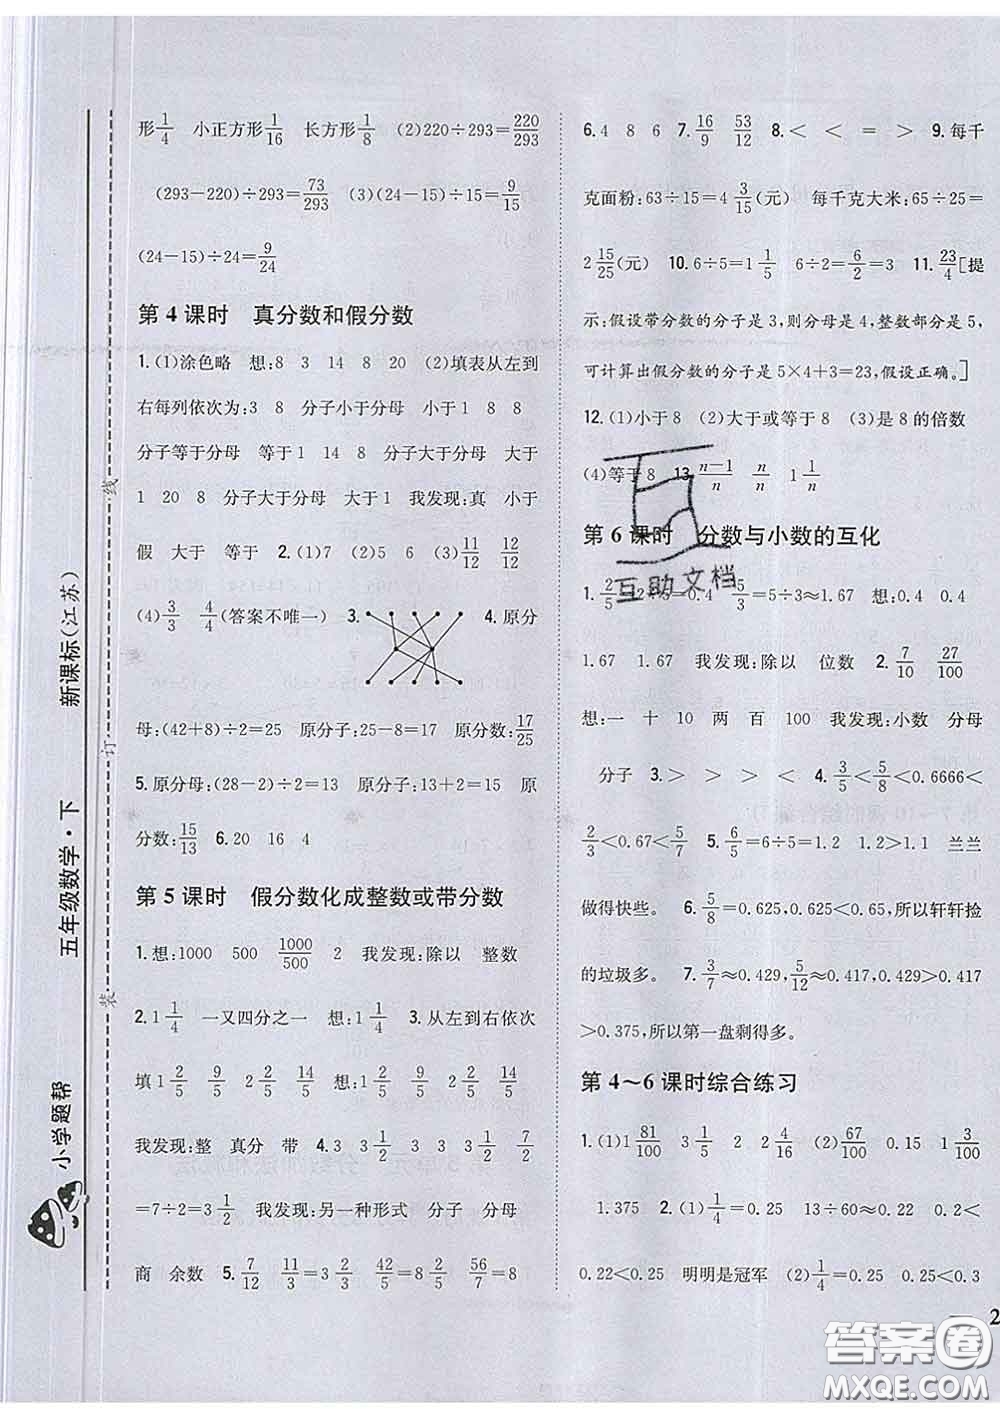 形1/4 小正方形1/16 长方形1/8 (2)220÷293=220/293
(293−220)÷293=73/293 (3)(24−15)÷15=9/15
(24−15)÷24=9/24
第4课时 真分数和假分数
1.(1)涂色略 想:8 3 14 8 20 (2)填表从左到
右每列依次为:3 8 分子小于分母 小于1 8 8
分子等于分母 等于1 14 8 分子大于分母 大于
1 20 8 分子大于分母 大于1 我发现:真 小于
假 大于 等于 2.(1)7 (2)5 6 (3)11/12 12/12
(4)3/3 4/4(答案不唯一) 3. 4.原分
母:(42+8)÷2=25 原分子:25−8=17 原分数:17/25
5.原分母:(28−2)÷2=13 原分子:13+2=15 原
分数:15/13 6.20 16 4
第5课时 假分数化成整数或带分数
1.想:1000 500 1000/500 2 我发现:除以 整数
2.1 1/4 一又四分之一 想:1 1/4 3.从左到右依次
填1 2/5 9/5 2 2/5 14/5 想:1 2/5 9/5 2 2/5 14/5
我发现:整 真分 带 4.3 3 1/2 3 1/2 3 3 1/2 7/2
=7÷2=3 1/2 我发现:另一种形式 分子 分母
商 余数 5.7/12 11/3=3 2/3 42/5=8 2/5 56/7=8
6.4 8 6 7.16/9 53/12 8.< < = > 9.每千
克面粉:63÷15=4 3/15(元) 每千克大米:65÷25=
2 15/25(元) 10.6÷5=1 1/5 6÷2=6/2=3 11.23/4[提
示:假设带分数的分子是3,则分母是4,整数部分是5,
可计算出假分数的分子是5×4+3=23,假设正确。]
12.(1)小于8 (2)大于或等于8 (3)是8的倍数
(4)等于8 13.n−1/n n/n 1 1/n
第6课时 分数与小数的互化
1.2/5=2÷5=0.4 5/3=5÷3≈1.67 想:0.4 0.4
1.67 1.67 我发现:除以 位数 2.7/10 27/100
想:一 十 10 两 百 100 我发现:小数 分母
分子 3.> > > < 4.3/5<5/8<0.6666<
2/3<0.67<5/7 5.6/5=6÷5=1.2 1.2>1.1 兰兰
做得快些。 6.5/8=0.625,0.625<0.65,所以轩轩捡
的垃圾多。 7.3/7≈0.429,5/12≈0.417,0.429>0.417
>0.375,所以第一盘剩得多。
第4~6课时综合练习
1.(1)1 81/100 3 1/5 2 2 4/16 (2)67/100 0.15 1 3/100
1.375 2.(1)1/4=0.25 13÷60≈0.22 0.2<
0.22<0.25 明明是冠军 (2)1/4=0.25 0.25<0.3
2
小学题帮
五年级数学·下
新课标(江苏)
装
订
线
互助文档
答案圈
MXQE.COM